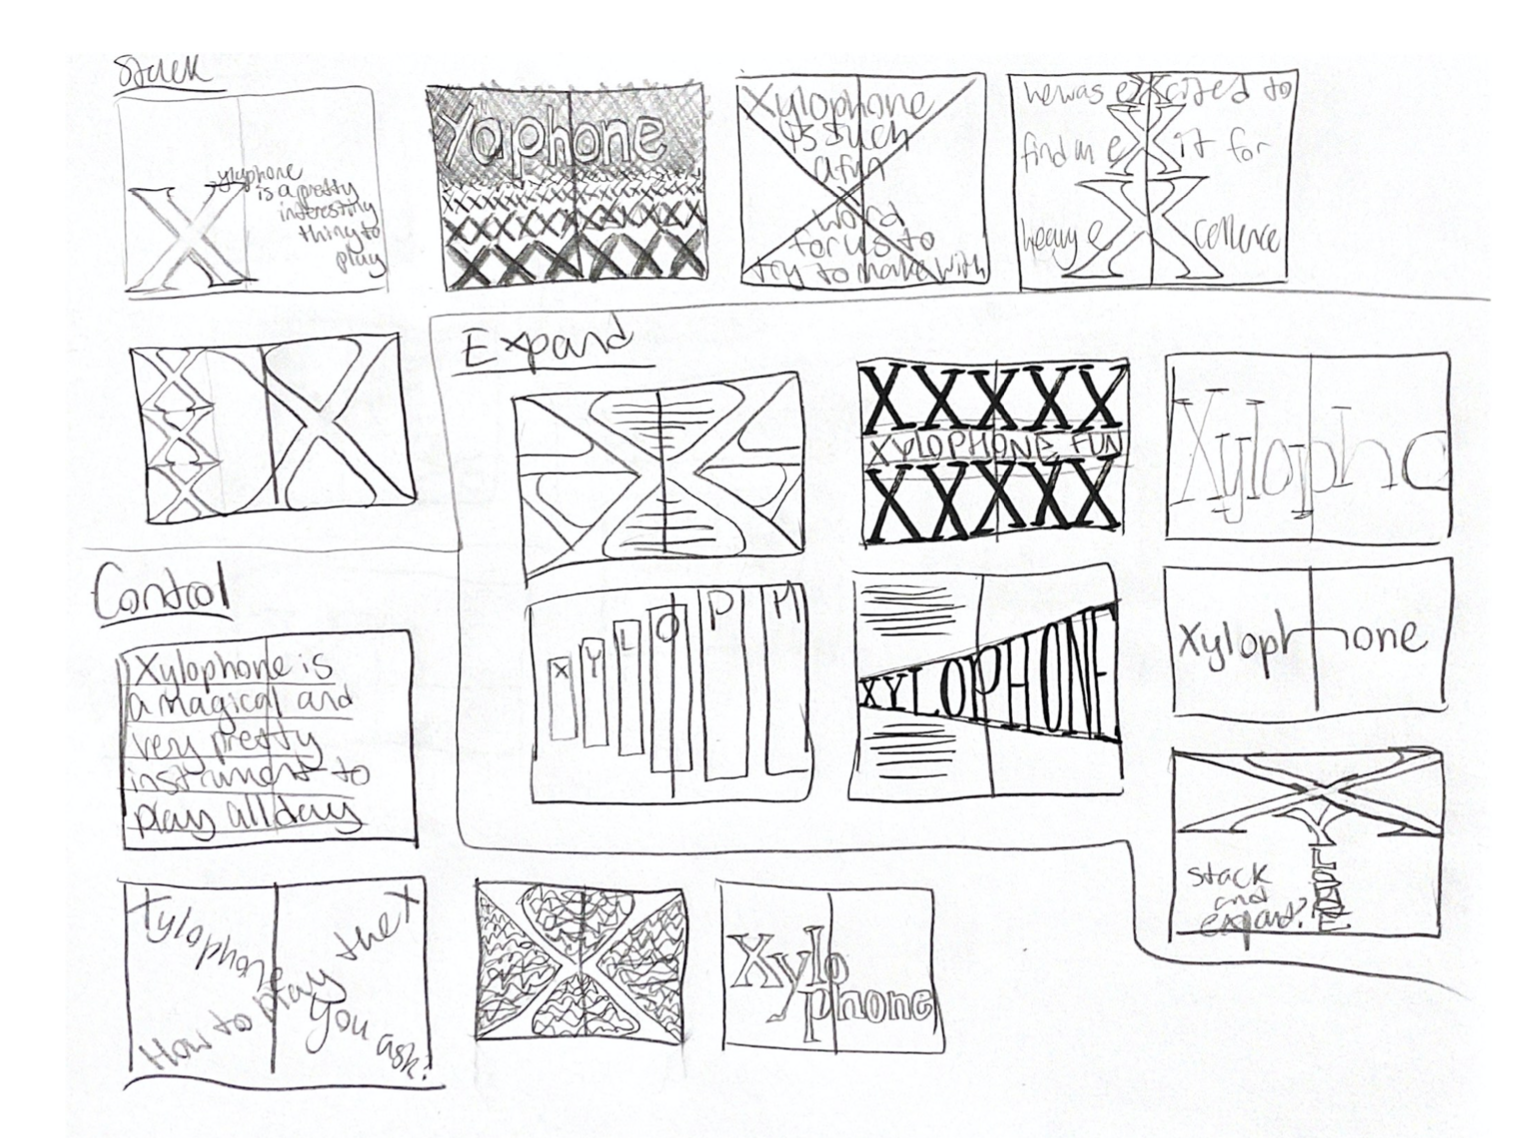 Stack
Xylophone
is a pretty
interesting
thing to
play
Yophone
XXXXXX
Xylophone
is such
a fun
word
for us to
try to make with
he was excited to
find me X it for
heavy eXcellence
X
X
X
X
Expand
X
XXXXX
XYLOPHONE FUN
XXXXX
Xylopho
X Y L O P H
XYLOPHONE
Xylophone
XYLOPHONE
stack
and
expand?
Control
Xylophone is
a magical and
very pretty
instrument to
play all day
Xylophone
How to play the X
you ask?
X
Xylo
phone